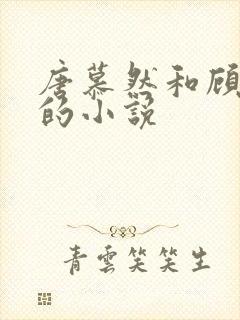 唐慕然和顾
的小说
青雲笑笑生